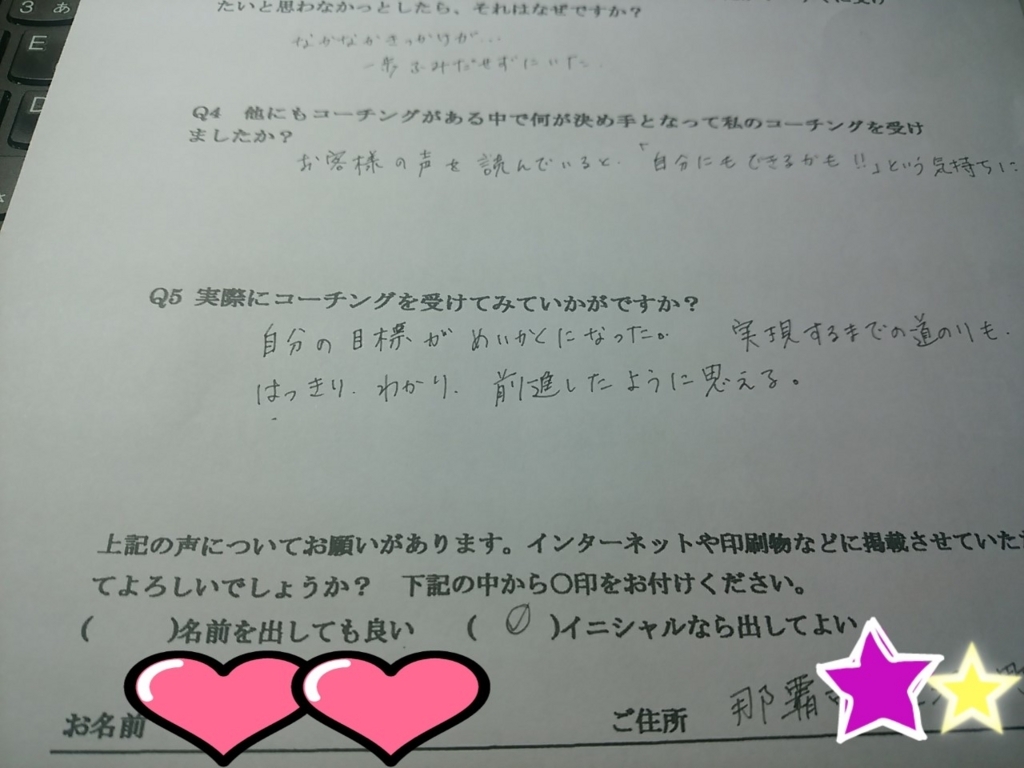 たいと思わなかっとしたら、それはなぜですか？
なかなかきっかけが…
一歩ふみだせずにいた.
Q4 他にもコーチングがある中で何が決め手となって私のコーチングを受け
ましたか？
お客様の声を読んでいると、「自分にもできるかも!!」という気持ちに
Q5 実際にコーチングを受けてみていかがですか？
自分の目標がめいかくになった。 実現するまでの道のりも、
はっきり、わかり、前進したように思える。
上記の声についてお願いがあります。インターネットや印刷物などに掲載させていただ
てよろしいでしょうか？ 下記の中から〇印をお付けください。
( )名前を出しても良い ( 〇 )イニシャルなら出してよい
お名前 ご住所 那覇
3 あ
E
D